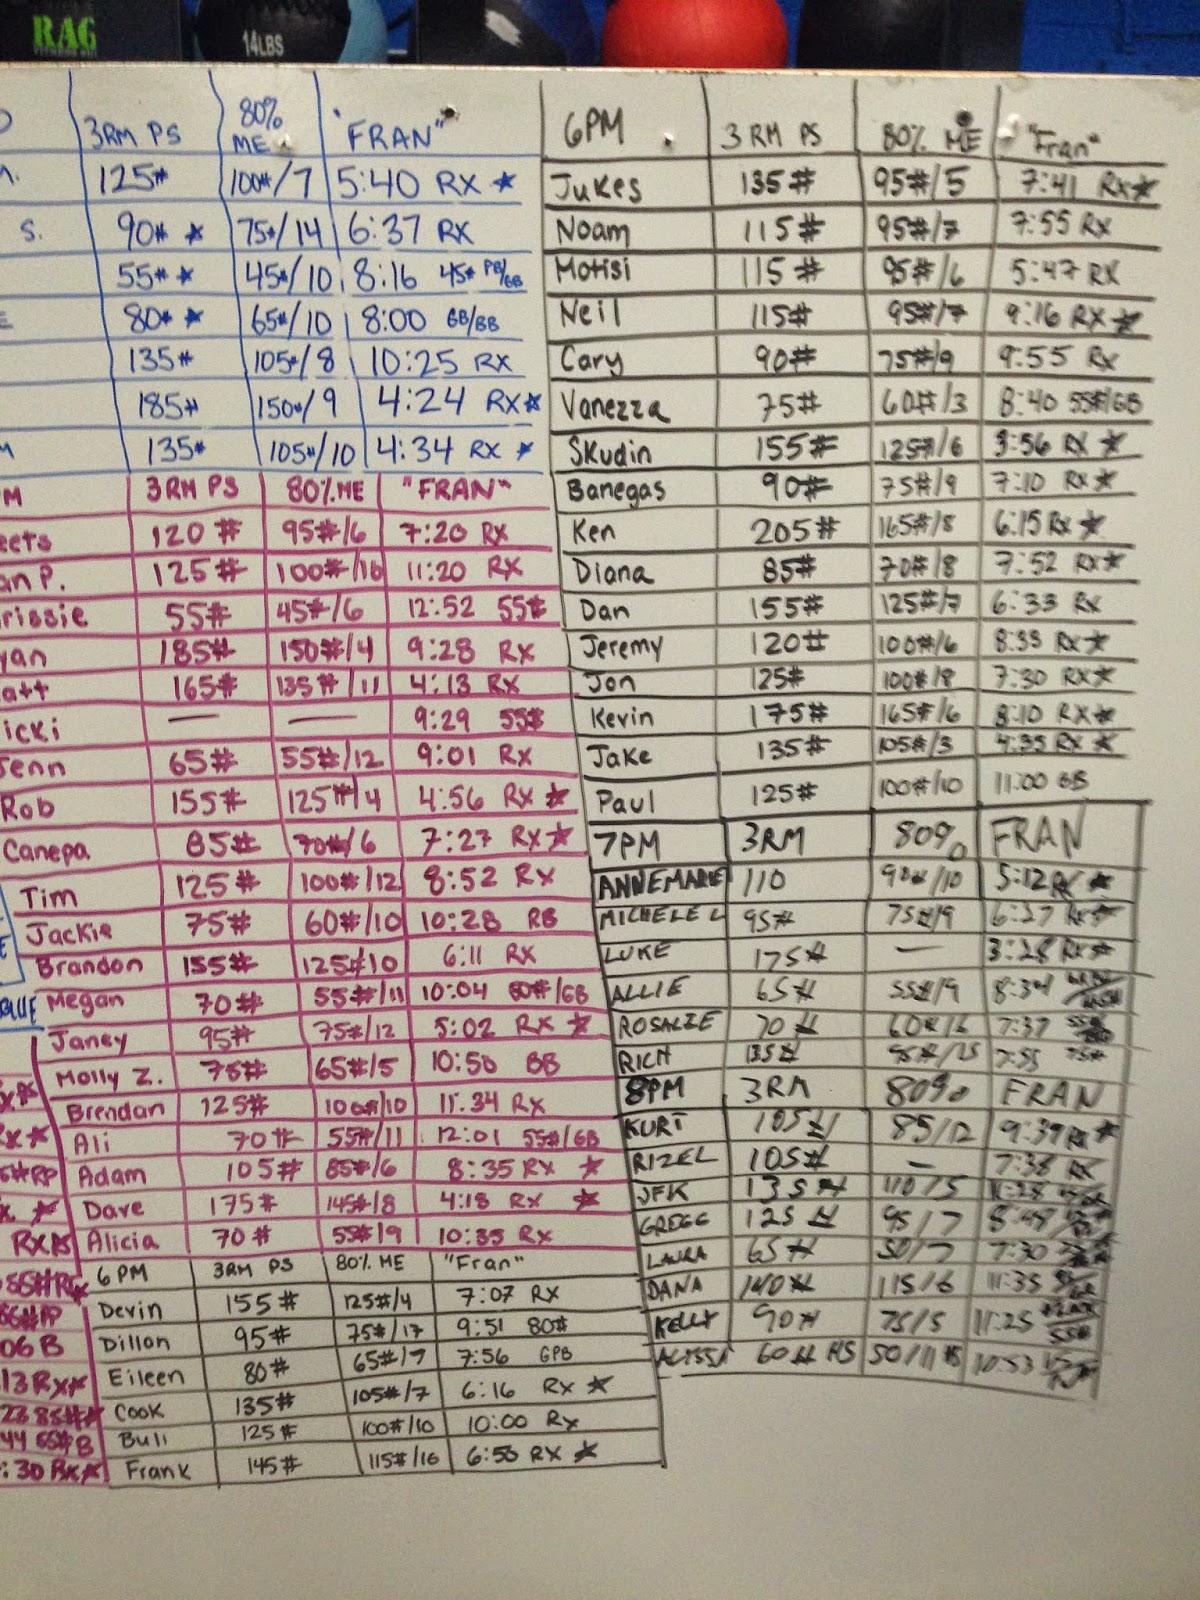 RAG
14LBS
3RM PS 80% ME "FRAN"
125# 100#/7 5:40 RX ★
S. 90# ★ 75#/14 6:37 RX
55# ★ 45#/10 8:16 45# PB/GB
80# ★ 65#/10 8:00 GB/BB
135# 105#/8 10:25 RX
185# 150#/9 4:24 RX ★
135# 105#/10 4:34 RX ★
M 3RM PS 80% ME "FRAN"
eets 120# 95#/6 7:20 RX
an P. 125# 100#/16 11:20 RX
rissie 55# 45#/6 12:52 55#
yan 185# 150#/4 9:28 RX
att 165# 135#/11 4:13 RX
icki — — 9:29 55#
Jenn 65# 55#/12 9:01 RX
Rob 155# 125#/4 4:56 RX ★
Canepa 85# 70#/6 7:27 RX ★
Tim 125# 100#/12 8:52 RX
Jackie 75# 60#/10 10:28 RB
Brandon 155# 125#10 6:11 RX
Megan 70# 55#/11 10:04 80#/GB
Janey 95# 75#/12 5:02 RX ★
Molly Z. 75# 65#/5 10:50 BB
Brendan 125# 100#/10 11:34 RX
Ali 70# 55#/11 12:01 55#/GB
Adam 105# 85#/6 8:35 RX ★
Dave 175# 145#/8 4:18 RX ★
Alicia 70# 55#/9 10:35 RX
6PM 3RM PS 80% ME "Fran"
Devin 155# 125#/4 7:07 RX
Dillon 95# 75#/17 9:51 80#
Eileen 80# 65#/9 7:56 GPB
Cook 135# 105#/7 6:16 RX ★
Bull 125# 100#/10 10:00 RX
Frank 145# 115#/16 6:58 RX ★
6PM 3RM PS 80% ME "Fran"
Jukes 135# 95#/5 7:41 RX ★
Noam 115# 95#/7 7:55 RX
Motisi 115# 95#/6 5:47 RX
Neil 115# 95#/7 9:16 RX ★
Cary 90# 75#/9 9:55 RX
Vanezza 75# 60#/3 8:40 55#/GB
Skudin 155# 125#/6 3:56 RX ★
Banegas 90# 75#/9 7:10 RX ★
Ken 205# 165#/8 6:15 RX ★
Diana 85# 70#/8 7:52 RX ★
Dan 155# 125#/7 6:33 RX
Jeremy 120# 100#/6 8:33 RX ★
Jon 125# 100#/8 7:30 RX ★
Kevin 175# 165#/6 8:10 RX ★
Jake 135# 105#/3 4:35 RX ★
Paul 125# 100#/10 11:00 GB
7PM 3RM 80% FRAN
ANNEMARIE 110 90#/10 5:12 RX ★
MICHELE L 95# 75#/9 6:27 RX ★
LUKE 175# — 3:28 RX ★
ALLIE 65# 55#/9 8:34
ROSALIE 70# 60#/6 7:37
RICH 135# 95#/15 7:55 75#
8PM 3RM 80% FRAN
KURT 105# 85/12 9:39 RX ★
RIZEL 105# — 7:38 RX
JFK 135# 110/5 11:28
GREGG 125# 95/7 8:48
LAURA 65# 50/7 7:30
DANA 140# 115/6 11:35
KELLY 90# 75/5 11:25 55#
ALYSSA 60# HS 50/11 10:53